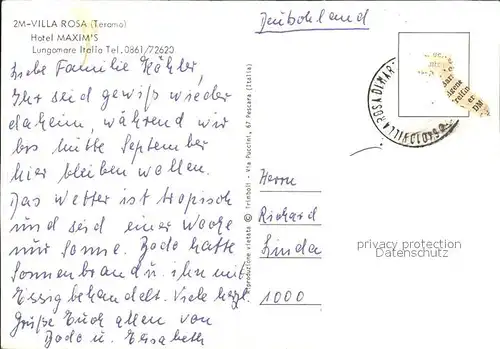 2M-VILLA ROSA (Teramo)
Hotel MAXIM'S
Lungomare Italia Tel. 0861/72620
Liebe Familie Köhler,
Ihr seid gewiß wieder
daheim, während wir
bis Mitte September
hier bleiben wollen.
Das Wetter ist tropisch
und seid einer Woche
nur Sonne. Bodo hatte
Sonnenbrand u. ihn mit
Essig behandelt. Viele herzl.
Grüße Euch allen von
Bodo u. Elisabeth
Produzione vietata © Trimboli - Via Puccini, 67 Pescara (Italia)
Deutschland
VILLA ROSA DI MAR
64010
Herrn
Richard
Linda
1000
privacy protection
Datenschutz